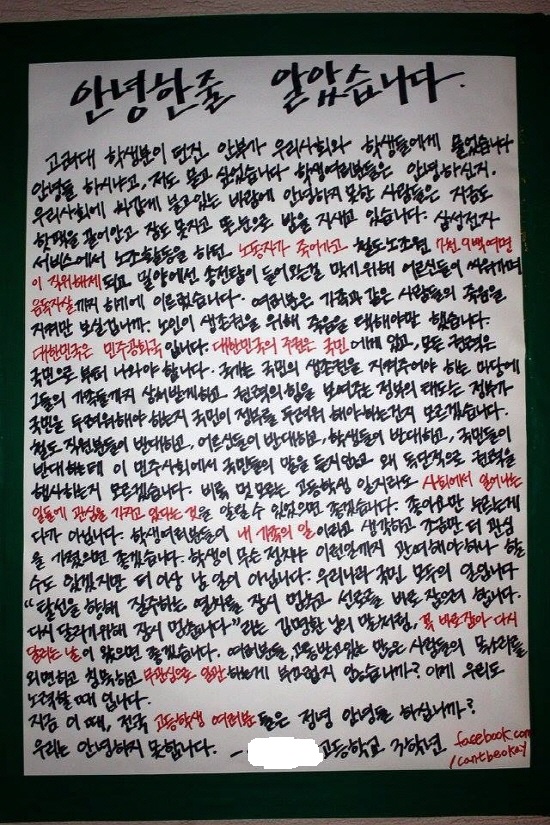 안녕한줄 알았습니다.
고려대 학생분이 던진 안부가 우리사회와 학생들에게 물었습니다
안녕들 하시냐고, 저도 묻고 싶었습니다 학생여러분들은 안녕하신지.
우리사회에 차갑게 불고있는 바람에 안녕하지 못한 사람들은 지금도
핫팩을 끌어안고 잠도 못자고 뜬눈으로 밤을 지새고 있습니다. 삼성전자
서비스에서 노조활동을 하던 노동자가 죽어가고 철도노조원 7천 9백여명
이 직위해제 되고 밀양에선 송전탑이 들어오는걸 막기위해 어르신들이 싸워가며
음독자살까지 하기에 이르렀습니다. 여러분은 가족과 같은 사람들의 죽음을
지켜만 보실겁니까. 노인이 생존권을 위해 죽음을 택해야만 했습니다.
대한민국은 민주공화국입니다. 대한민국의 주권은 국민에게 있고, 모든 권력은
국민으로 부터 나와야 합니다. 국가는 국민의 생존권을 지켜주어야 하는 마당에
그들의 가족들까지 상처받게하고 권력의 힘을 보여주는 정부의 태도는 정부가
국민을 두려워해야 하는지 국민이 정부를 두려워 해야 하는건지 모르겠습니다.
철도 직원분들이 반대하고, 어르신들이 반대하고, 학생들이 반대하고, 국민들이
반대하는데 이 민주사회에서 국민들의 말을 듣지않고 왜 독단적으로 권력을
행사하는지 모르겠습니다. 비록 멋모르는 고등학생 일지라도 사회에서 일어나는
일들에 관심을 가지고 있다는 것을 알릴 수 있었으면 좋겠습니다. 좋아요만 누르는게
다가 아닙니다. 학생여러분들이 내 가족의 일이라고 생각하고 조금만 더 관심
을 가졌으면 좋겠습니다. 학생이 무슨 정치냐 이런일까지 관여해야하나 하실
수도 있겠지만 더 이상 남 일이 아닙니다. 우리나라 국민 모두의 일입니다
"탈선을 향해 질주하는 열차를 잠시 멈추고 선로를 바로 잡으려 합니다.
다시 달리기위해 잠시 멈춥니다"라는 김명환 님의 말처럼, 꼭 바로잡아 다시
달리는 날이 왔으면 좋겠습니다. 여러분들, 고통받고있는 많은 사람들의 목소리를
외면하고 침묵하고 무관심으로 일관하는게 부끄럽지 않으십니까? 이제 우리도
노력할때 입니다.
지금 이 때, 전국 고등학생 여러분들은 정녕 안녕들 하십니까?
우리는 안녕하지 못합니다. - 고등학교 3학년
facebook.com
/cantbeokay